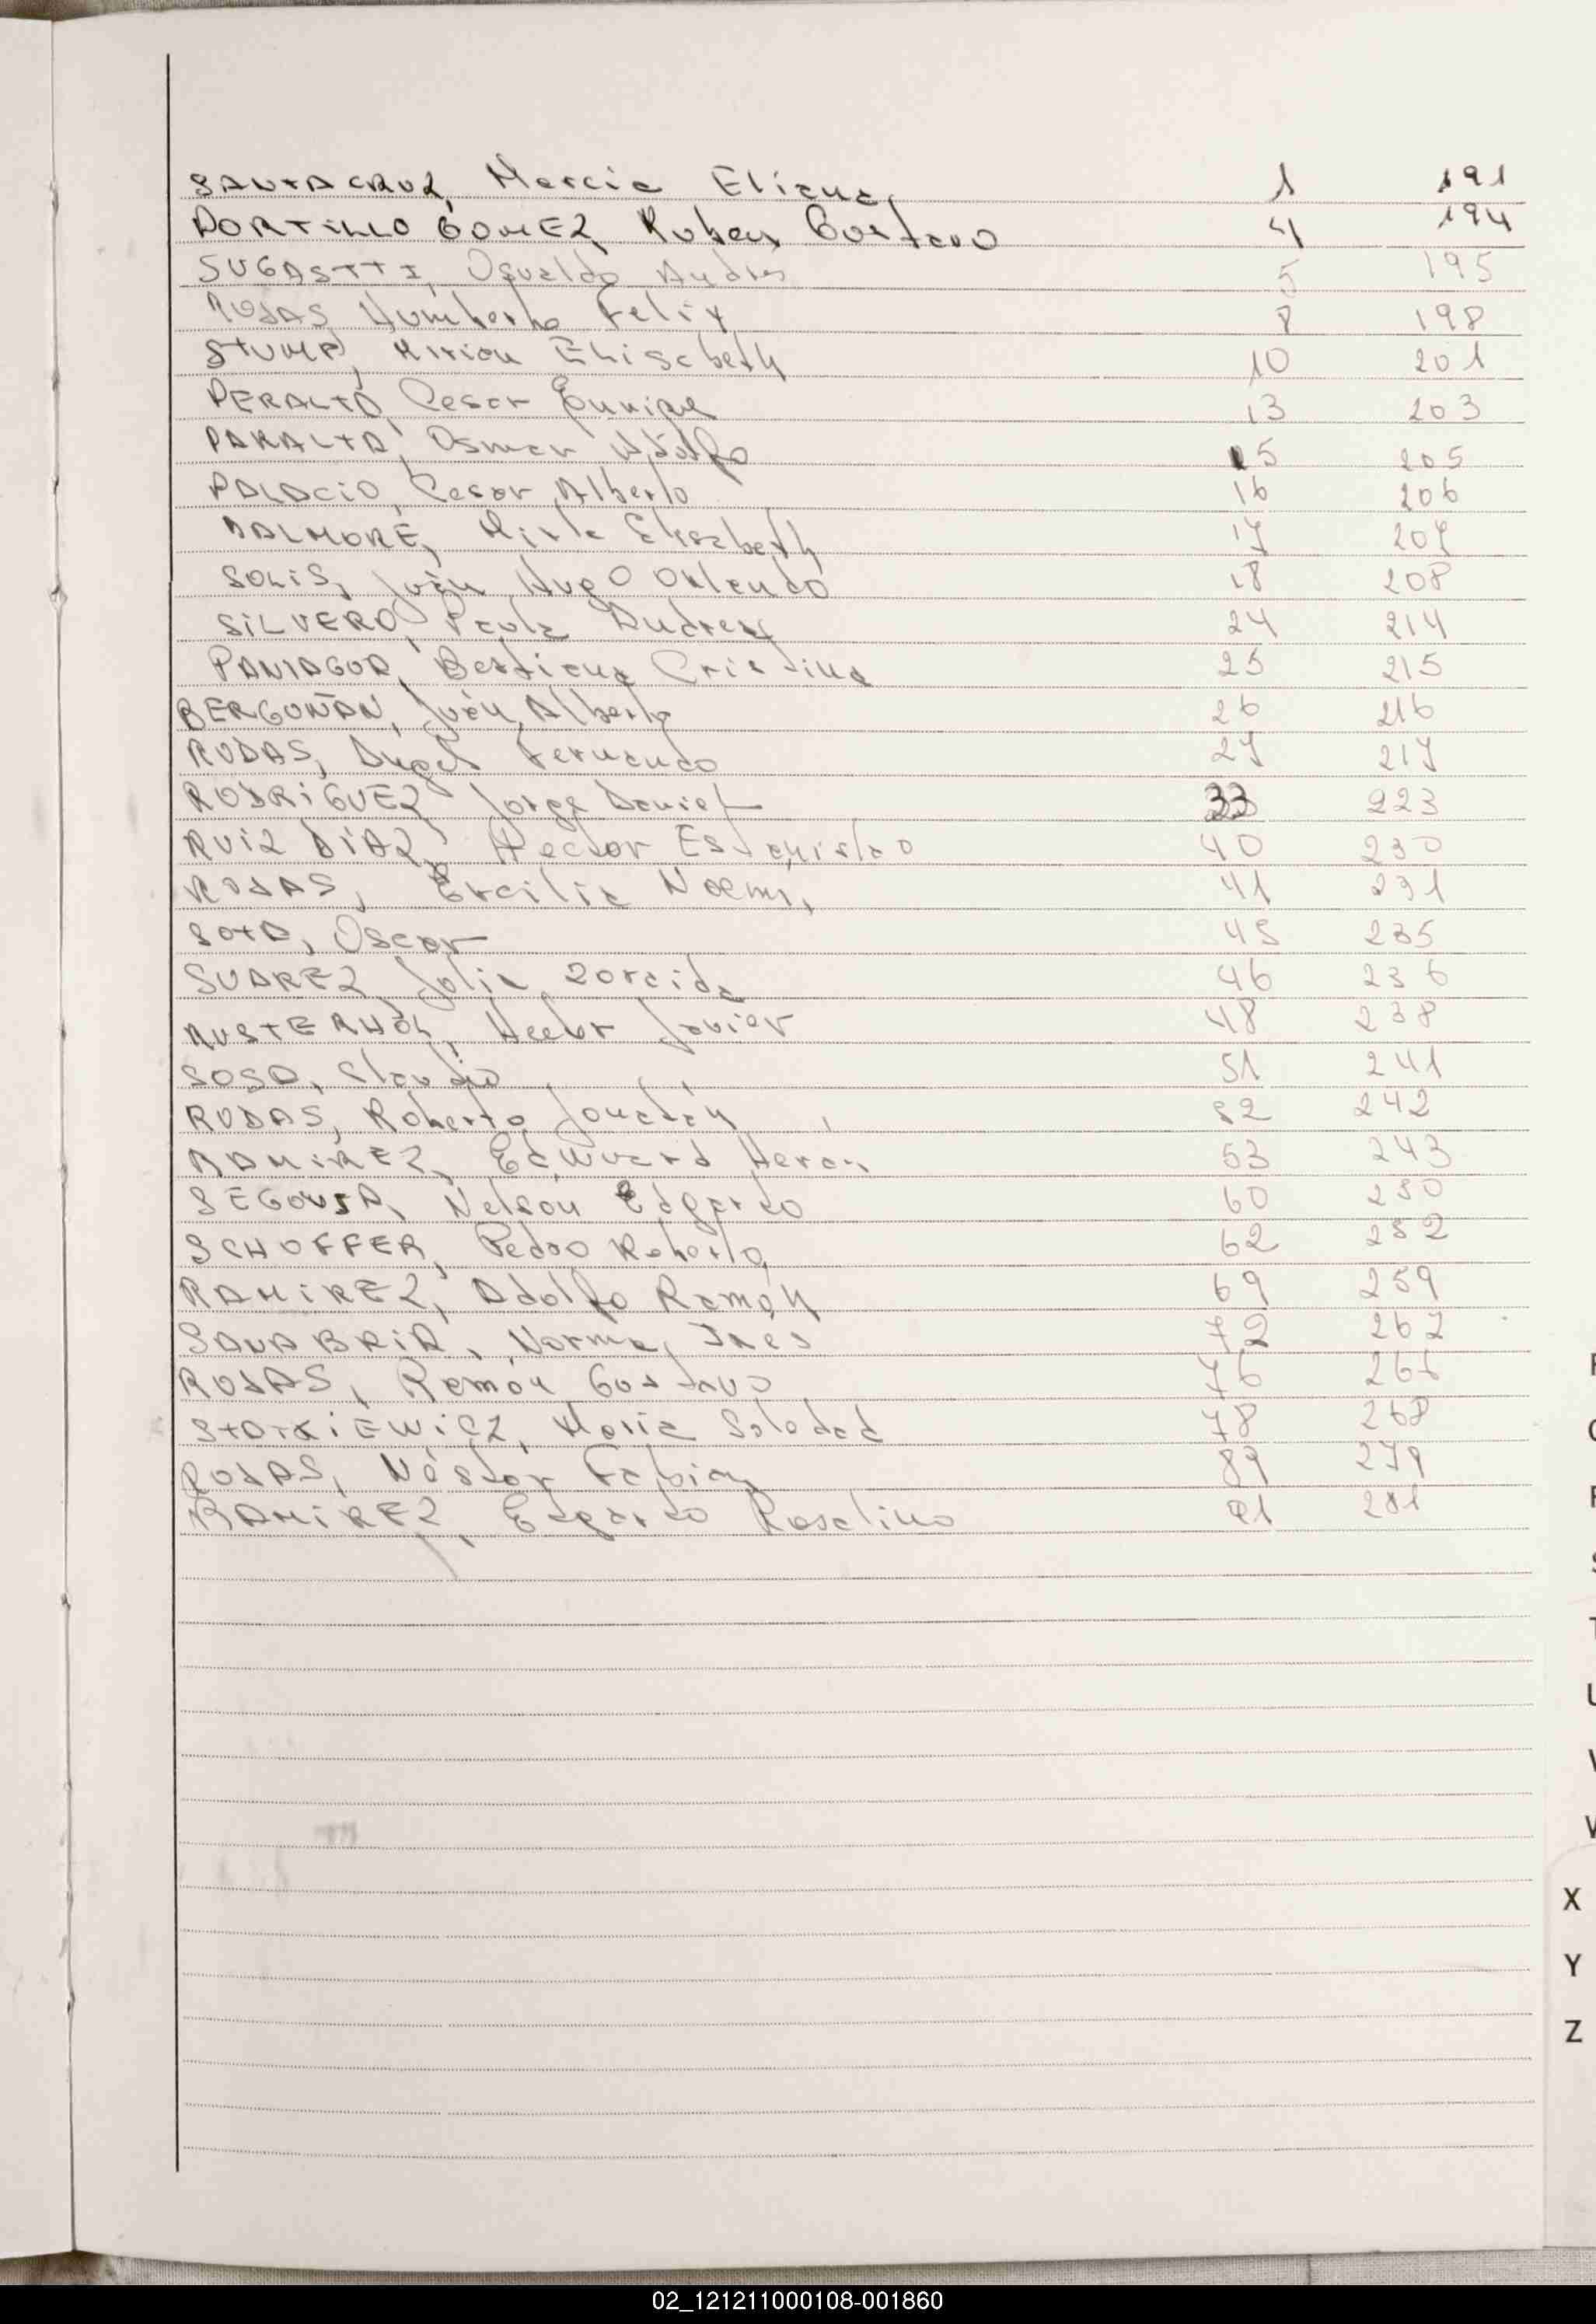 SANTACRUZ, Marcia Eliana 1 191
PORTILLO GOMEZ, Ruben Gustavo 4 194
SUGASTTI, Osvaldo Andrés 5 195
ROJAS, Humberto Felix 8 198
STUMP, Mirian Elisabeth 10 201
PERALTA, Cesar Enrique 13 203
PARALTA, Osmar Adolfo 15 205
PALACIO, Cesar Alberto 16 206
DALMORE, Mirta Elisabeth 17 207
SOLIS, Juán Hugo Orlando 18 208
SILVERO, Paula Andrea 24 214
PANIAGUA, Cristina 25 215
BERGOÑAN, Juán Alberto 26 216
RODAS, Angel Fernando 27 217
RODRIGUEZ, Jorge Daniel 33 223
RUIZ DIAZ, Hector Estanislao 40 230
ROJAS, Ercilia Noemi, 41 231
SOTO, Oscar 45 235
SUAREZ, Julia Zoraida 46 236
MUSTERHOL, Hector Javier 48 238
SOSA, Claudio 51 241
RODAS, Roberto Jonatán 52 242
RAMIREZ, Edwuard Hernán 53 243
SEGOVIA, Nelson Edgardo 60 250
SCHOFFER, Pedro Roberto 62 252
RAMIREZ, Adolfo Ramón 69 259
SANABRIA, Norma Inés 72 262
ROJAS, Ramón Gustavo 76 266
STOTKIEWICZ, Maria Soledad 78 268
ROJAS, Néstor Fabian 89 279
RAMIREZ, Edgardo Roselino 91 281
X
Y
Z
02_121211000108-001860